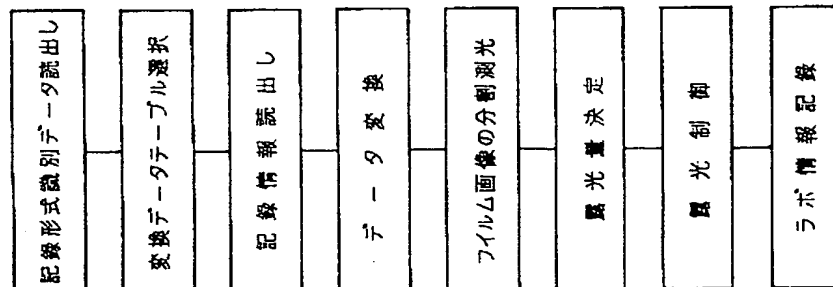 記録形式識別データ読出し
変換データテーブル選択
記録情報読出し
データ変換
フイルム画像の分割測光
露光量決定
露光制御
ラボ情報記録